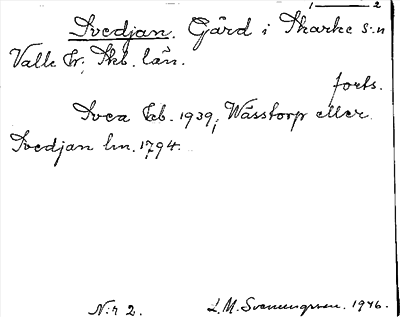 1 — 2
Svedjan. Gård i Skarke s:n
Valle hr, Skb. län.
forts.
Svea Eb. 1939; Wässtorp eller
Svedjan lm. 1794.
N:r 2. L. M. Svenungsson. 1946.